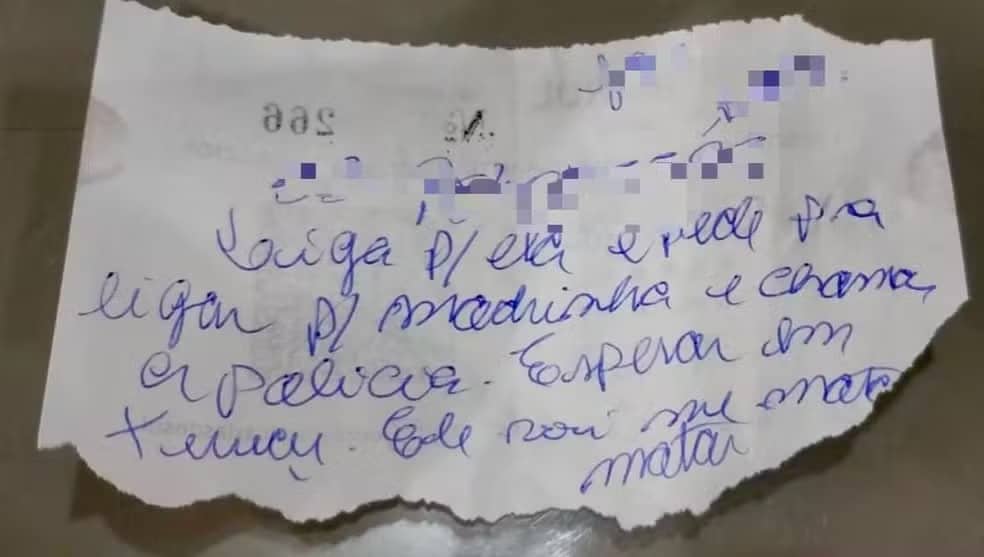 266
Nº
Liga p/ ela e pede pra
ligar p/ madrinha e chama
a policia. Esperar em
Ele vai me mata
matar